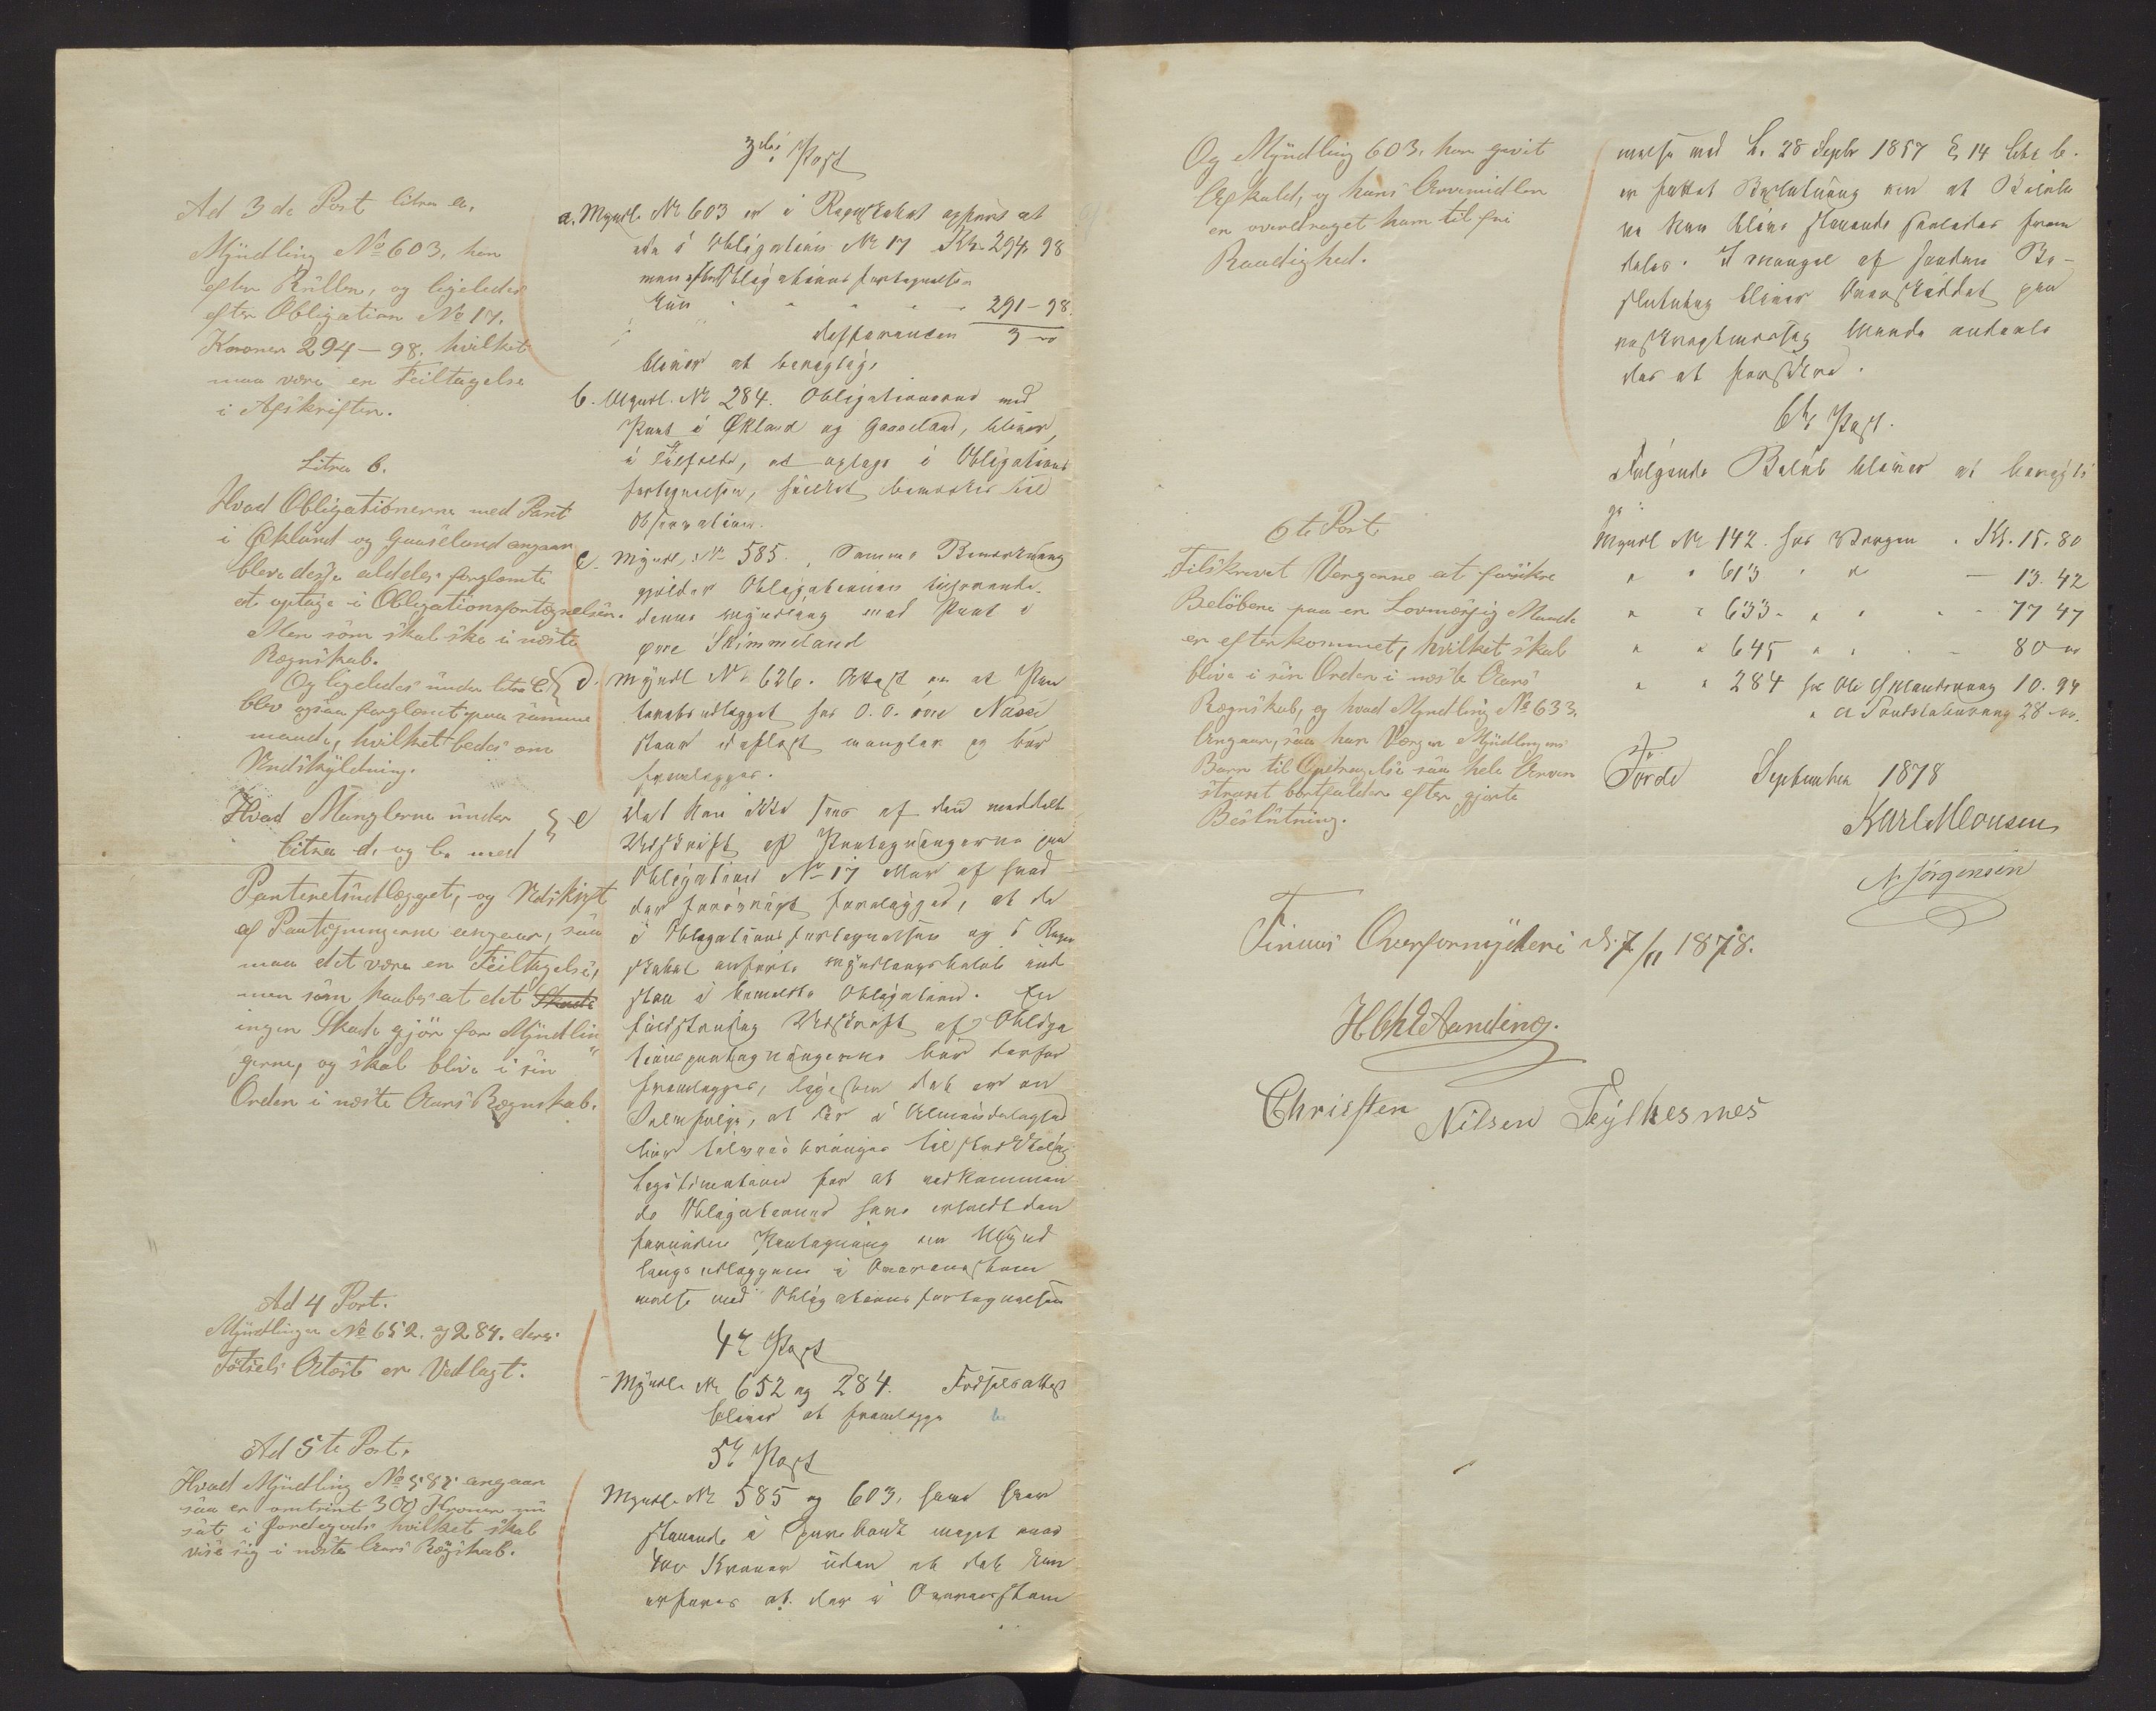 Ad 3de Post litra a.
Myndling No 603, har
efter Rullen, og ligeledes
efter Obligation No 17.
Kroner 294–98. hvilket
maa være en Feiltagelse
i Afskriften.
Litra b.
Hvad Obligationerne med Pant
i Økland og Gaaseland angaar
bleve disse aldeles forglemte
at optage i Obligationsfortegnelsen.
Men som skal ske i næste
Regnskab.
Og ligeledes under litra C
blev ogsaa forglemt paa samme
maade, hvilket bedes om
Undskyldning.
Hvad Manglerne under
litra d. og e. med
Panteretsudlægget, og Udskrift
af Pantegningerne angaar, saa
maa det være en Feiltagelse,
men som haabes at det Skade
ingen Skade gjør for Myndlin
gerne, og skal blive i sin
Orden i næste Aars Regnskab.
Ad 4 Post.
Myndlingen No 652. og 284. deres
Fødsels Attest er Vedlagt.
Ad 5te Post.
Hvad Myndling No 585 angaar
saa er omtrint 300 Kroner nu
sat i Jordegods hvilket skal
vise sig i næste Aars Regskab.
3die Post
a. Myndl. No 603 er i Regnskabet opført at
eie i Obligation No 17 Kr. 294, 98
men efter Obligationsfortegnelsen
kun 291–98.
differencen 3 –
bliver at berigtige
b. Myndl. No 284. Obligationerne med
Pant i Økland og Gaaseland, bliver,
i Tilfælde, at optage i Obligations
fortegnelsen, hvilket bemærkes til
Observation.
c. Myndl. No 585. Samme Bemærkning
gjelder Obligationen tilhørende
denne Myndling med Pant i
øvre Skimmeland
d. Myndl No 626. Attest om at Pan
teretsudlægget hos O. O. øvre Næse
staar uaflæst mangler og bør
fremlægges.
e Det kan ikke sees af den meddelte
Udskrift af Pantegningerne paa
Obligation No 17 eller af hvad
der forøvrigt foreligger, at de
i Obligationsfortegnelsen og i Regn
skabet anførte Myndlingsbeløb ind
staa i bemeldte Obligation. En
fuldstændig Udskrift af Obliga
tionspantegningerne bør derfor
fremlægges, ligesom det er en
Selvfølge, at der i Almindelighed
bør tilveiebringes tilstrækkelig
Legitimation for at vedkommen
de Obligationer have erholdt den
fornødne Pantegning om Mynd
lings udlæggene i Overensstem
melse med Obligationsfortegnelsen
4de Post
Myndl. No 652 og 284. Fødselsattest
bliver at fremlægge
5te Post
Myndl. No 585 og 603, have havt
staaende i Sparebank meget over
400 Kroner uden at det kan
erfares at der i Overensstem
Og Myndling 603. har givet
Afkald, og hans Arvemidler
er overdraget ham til fri
Raadighed.
6te Post
Tilskrevet Vergerne at forsikre
Beløbene paa en Lovmæssig Maade
er efterkommet, hvilket skal
blive i sin Orden i næste Aars
Regnskab, og hvad Myndling No 633,
Angaar, saa har Vergen Myndlingens
Barn til Opdragelse saa hele Arven
straxt bortfalder efter gjorte
Beslutning.
melse med L. 28 Septbr 1857 § 14 litr b.
er fattet Beslutning om at Beløbe
ne kun blive staaende saaledes frem
deles. I mangel af saadan Be-
slutning bliver Overskuddet paa
reskriptmæssig Maade anderle
des at forsikre.
6te Post.
Følgende Beløb bliver at berigti
ge:
Myndl No 142. hos Vergen . Kr. 15. 80
" " 613 " " – 13. 42
" " 633 - " " - - 77 47
" " 645 " " - - 80 –
" " 284 hos Ole Øklandsvaag 10. 94
Førde September 1878
Karl Monsen
N Jørgensen
Finnaas Overformynderi d. 7/11 1878.
Christen Nilsen Fylkesnes